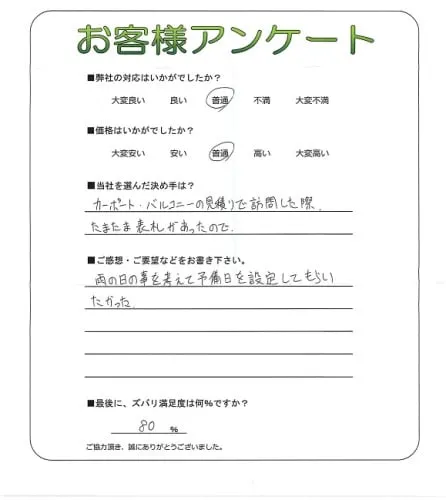 お客様アンケート
■弊社の対応はいかがでしたか?
大変良い 良い 普通 不満 大変不満
■価格はいかがでしたか?
大変安い 安い 普通 高い 大変高い
■当社を選んだ決め手は?
カーポート・バルコニーの見積りで訪問した際、
たまたま表札があったので。
■ご感想・ご要望などをお書き下さい。
雨の日の事を考えて予備日を設定してもらい
たかった。
■最後に、ズバリ満足度は何%ですか?
80 %
ご協力頂き、誠にありがとうございました。